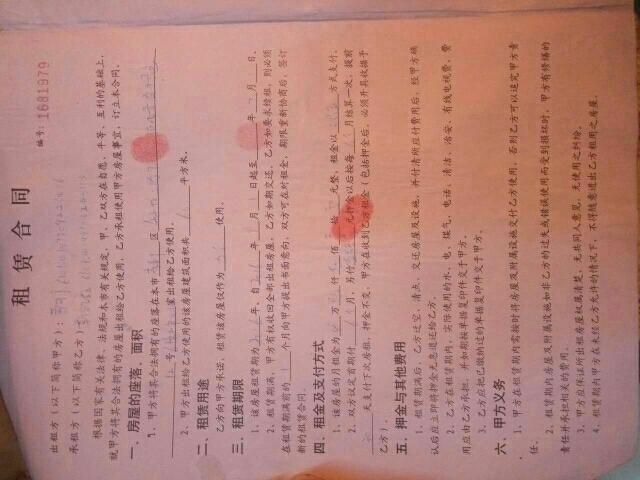 租 赁 合 同
编号：1681979
出租方（以下简称甲方）：
承租方（以下简称乙方）：
根据国家有关法律、法规和本市有关规定，甲、乙双方在自愿、平等、互利的基础上，
就甲方将其合法拥有的房屋出租给乙方使用，乙方承租使用甲方房屋事宜，订立本合同。
一、房屋的座落、面积
1、甲方将其合法拥有的座落在本市 区
号 室出租给乙方使用。
2、甲方出租给乙方使用的该房屋建筑面积共 平方米。
二、租赁用途
乙方向甲方承诺，租赁该房屋仅作为 使用。
三、租赁期限
1、该房屋租赁期为 年，自 年 月 日起至 年 月 日。
2、租赁期满，甲方有权收回全部出租房屋，乙方如期交还，乙方如要求续租，则必须
在租赁期满前的 个月向甲方提出书面意向，双方可在对租金、期限重新协商后，签订
新的租赁合同。
四、租金及支付方式
1、该房屋的月租金为 万 仟 佰 拾 元整，租金以 方式支付。
2、双方议定首期付 月，另付 元押金以后按每 月结算一次，提前
天支付下次房租，押金不变，甲方在收到乙方租金（包括押金后，必须开具收据于
乙方）。
五、押金与其他费用
1、租赁期满后，乙方迁空、清点、交还房屋及设施，并付清所应付费用后，经甲方确
认后应立即将押金无息退还给乙方。
2、乙方在租赁期间，实际使用的水、电、煤气、电话、清洁、治安、有线电视费，费
用应由乙方承担，并如期按单据复印件交于甲方。
3、乙方应把已缴纳过的单据复印件交于甲方。
六、甲方义务
1、甲方在租赁期内需按时将房屋及附属设施交付乙方使用，否则乙方可以追究甲方责
任。
2、租赁期内房屋及附属设施如非乙方的过失或错误使用而受到损坏时，甲方有修缮的
责任并承担相关的费用。
3、甲方应保证所出租房屋权属清楚，无共同人意见，无使用之纠纷。
4、租赁期内甲方在未经乙方允许的情况下，不得随意进出乙方租用之房屋。